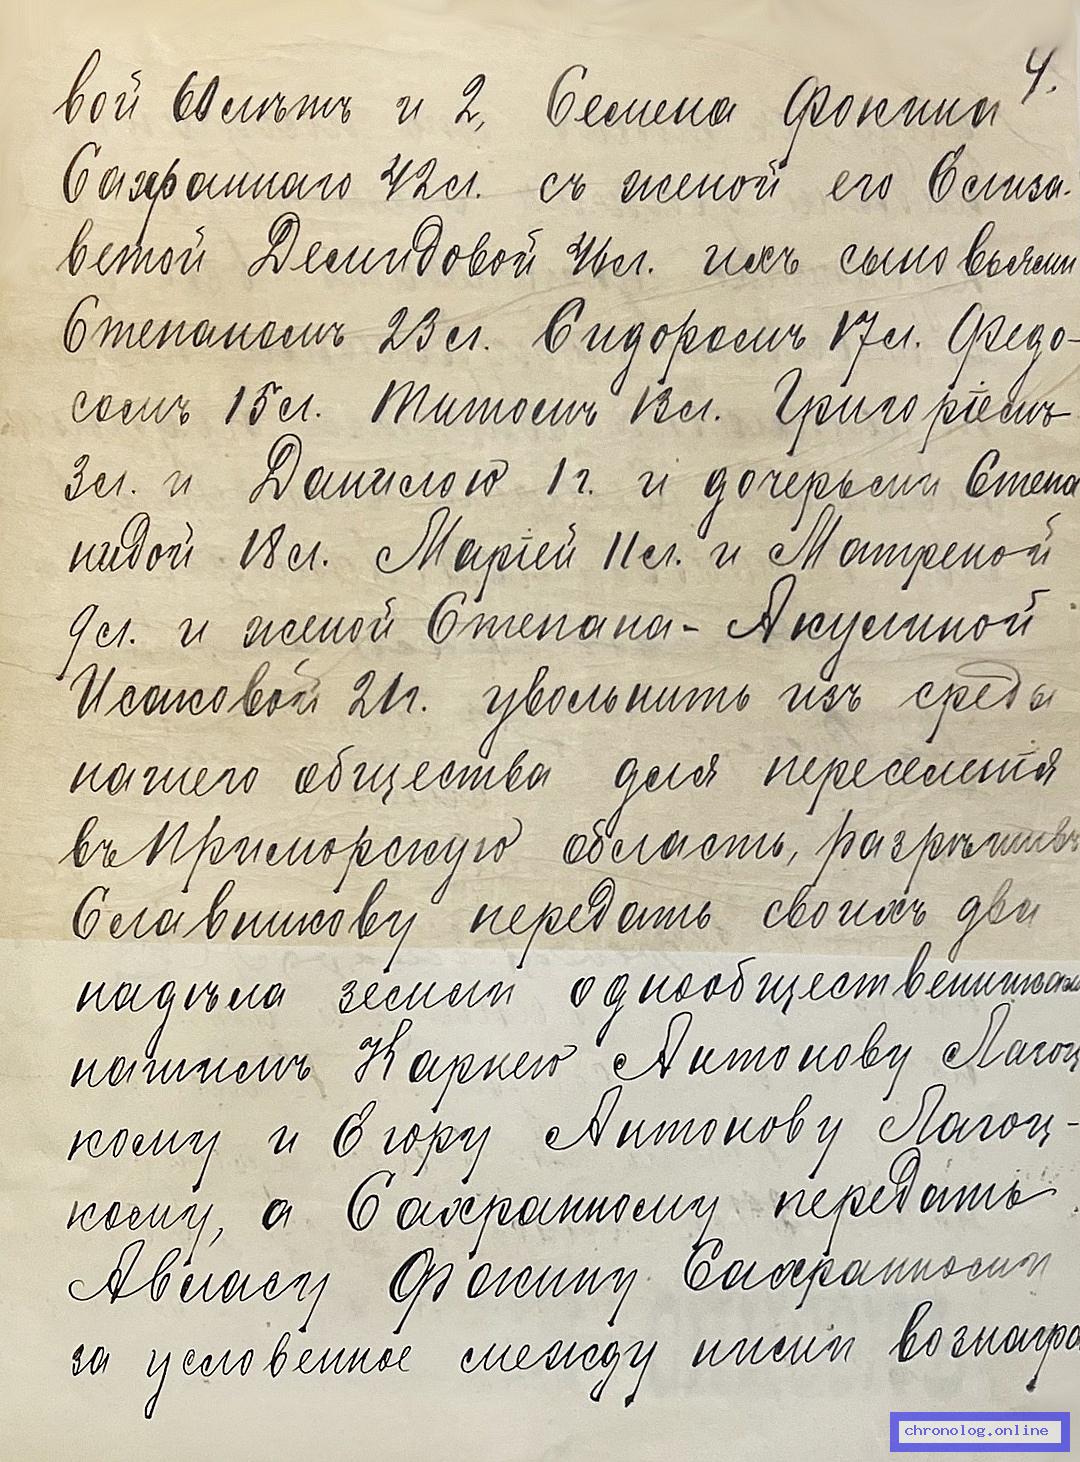 4.
вой 60 лѣтъ и 2, Семена Фокина
Сахраннаго 42 л. съ женой его Елиза-
ветой Демидовой 41 л. ихъ сыновьями
Степаномъ 23 л. Сидоромъ 17 л. Федо-
сомъ 15 л. Титомъ 13 л. Григоріемъ
3 л. и Данилою 1 г. и дочерьми Степа
нидой 18 л. Маріей 11 л. и Матреной
9 л. и женой Степана - Акулиной
Исаковой 21 г. уволить изъ среды
нашего общества для переселенія
въ Приморскую область, разрѣшивъ
Славникову передать своихъ два
надѣла земли однообщественникам
нашимъ Карнею Антонову Лагоц
кому и Егору Антонову Лагоц-
кому, а Сахранному передать
Авласу Фокину Сахранному
за условенное между ними вознагра
chronolog.online